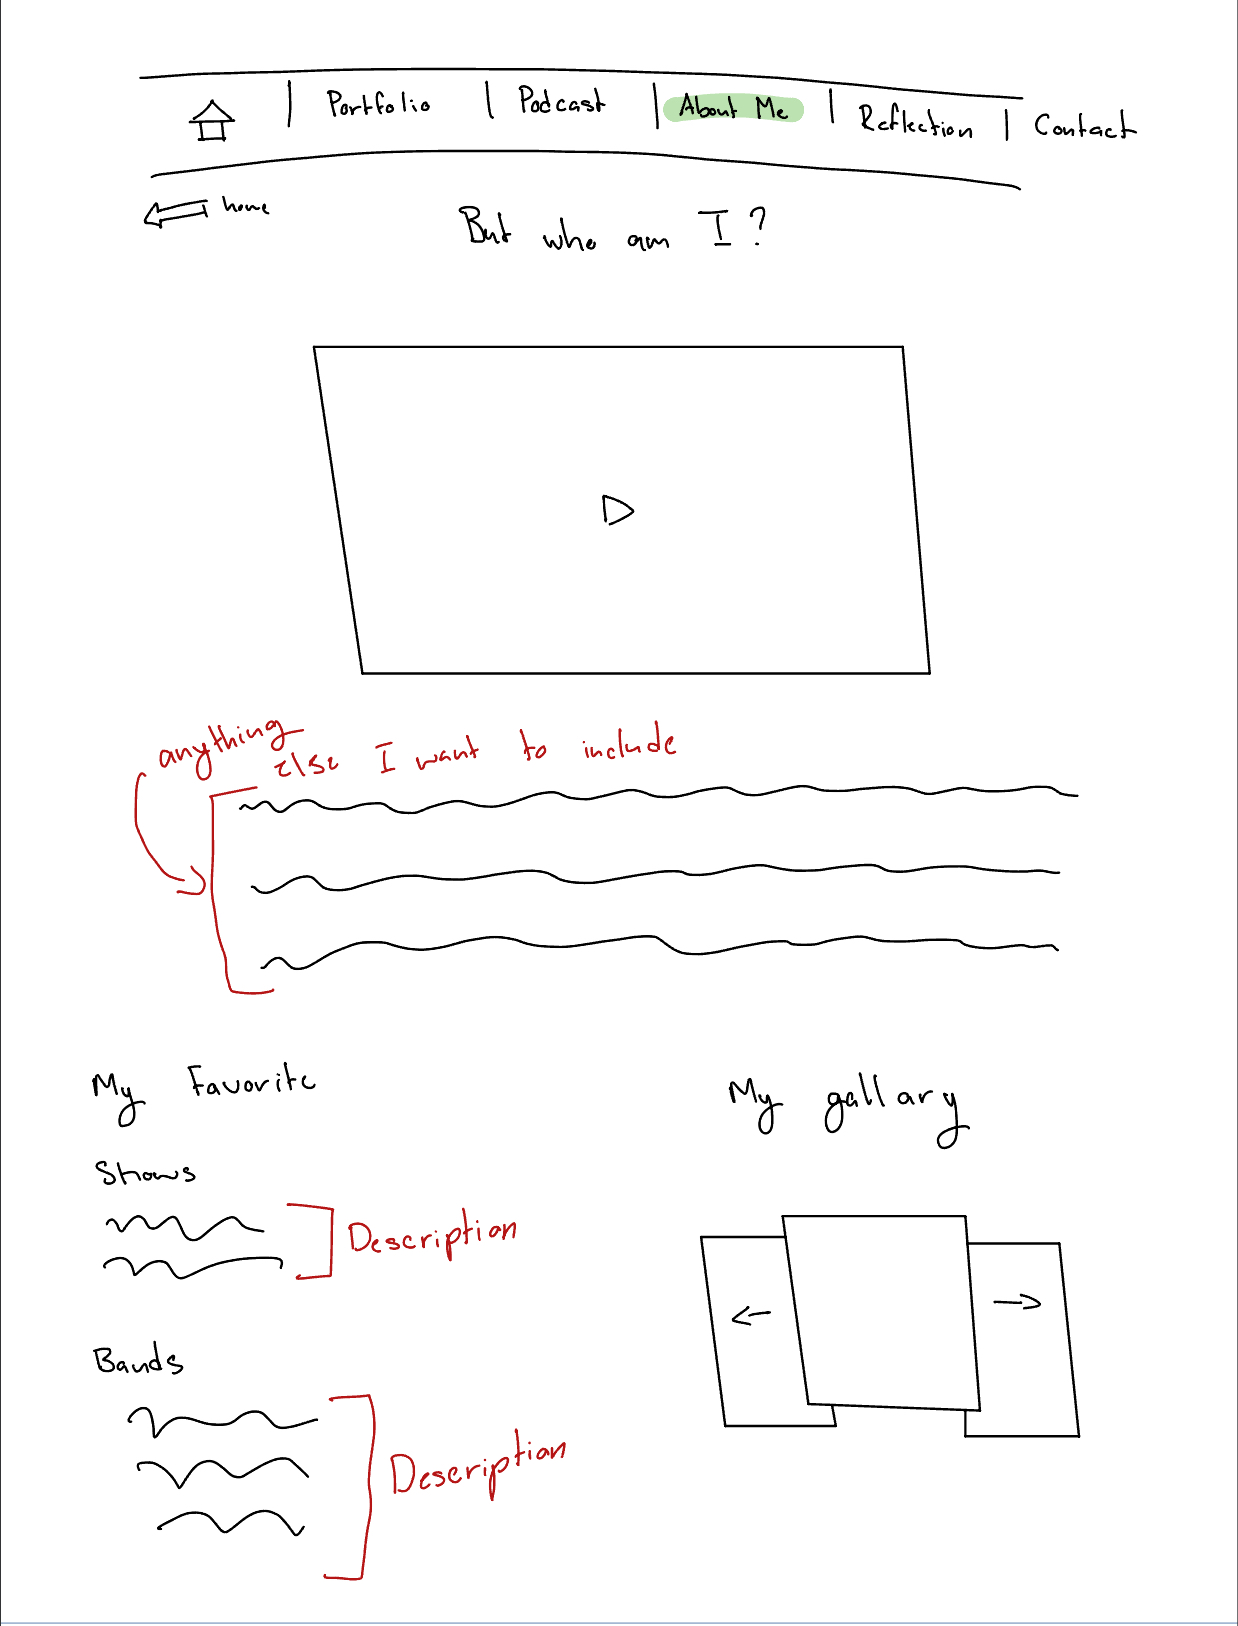 Portfolio | Podcast | About Me | Reflection | Contact
home
But who am I?
anything
else I want to include
My Favorite
My gallary
Shows
Description
Bands
Description